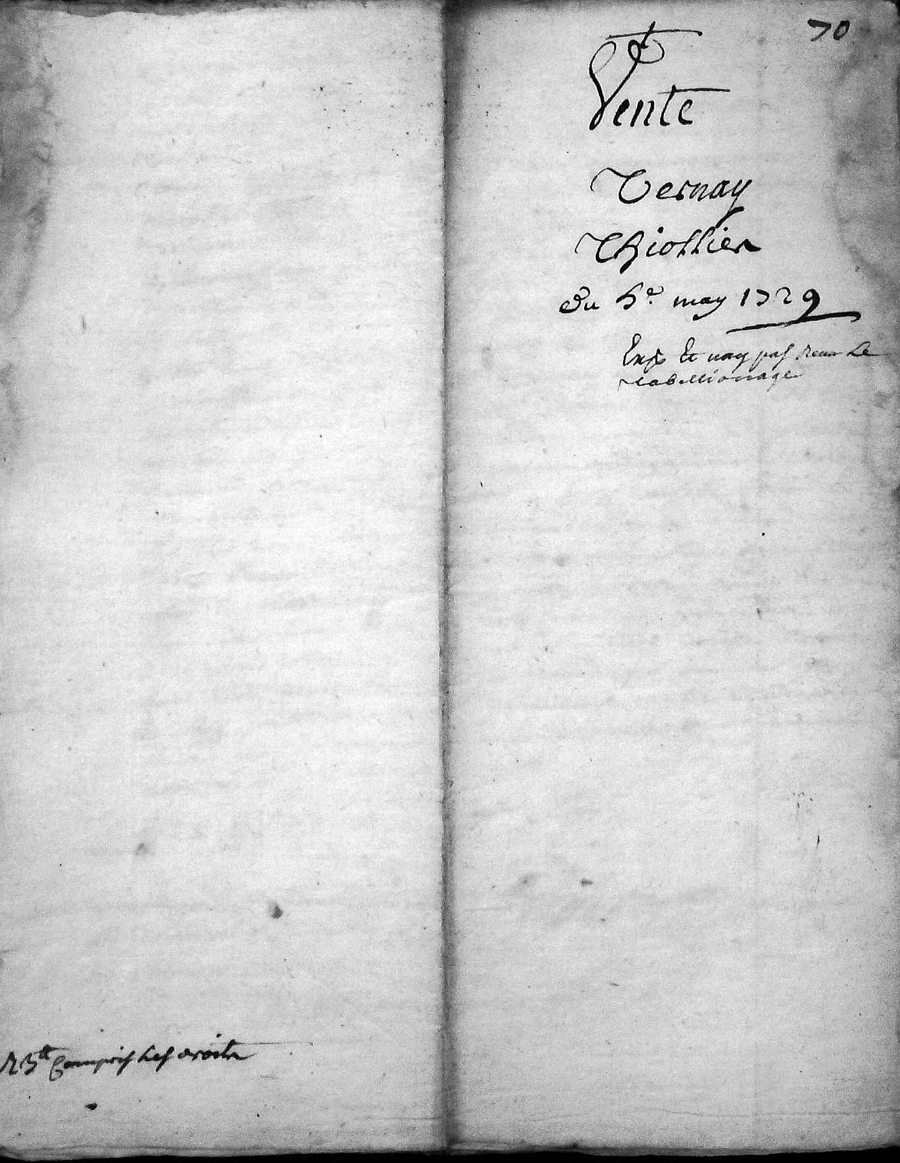 70
Vente
Vernay
Thiollier
Du 5e. may 1729
Exp Et nay pas receu Le
tabellionnage
23tt Compris Les droits